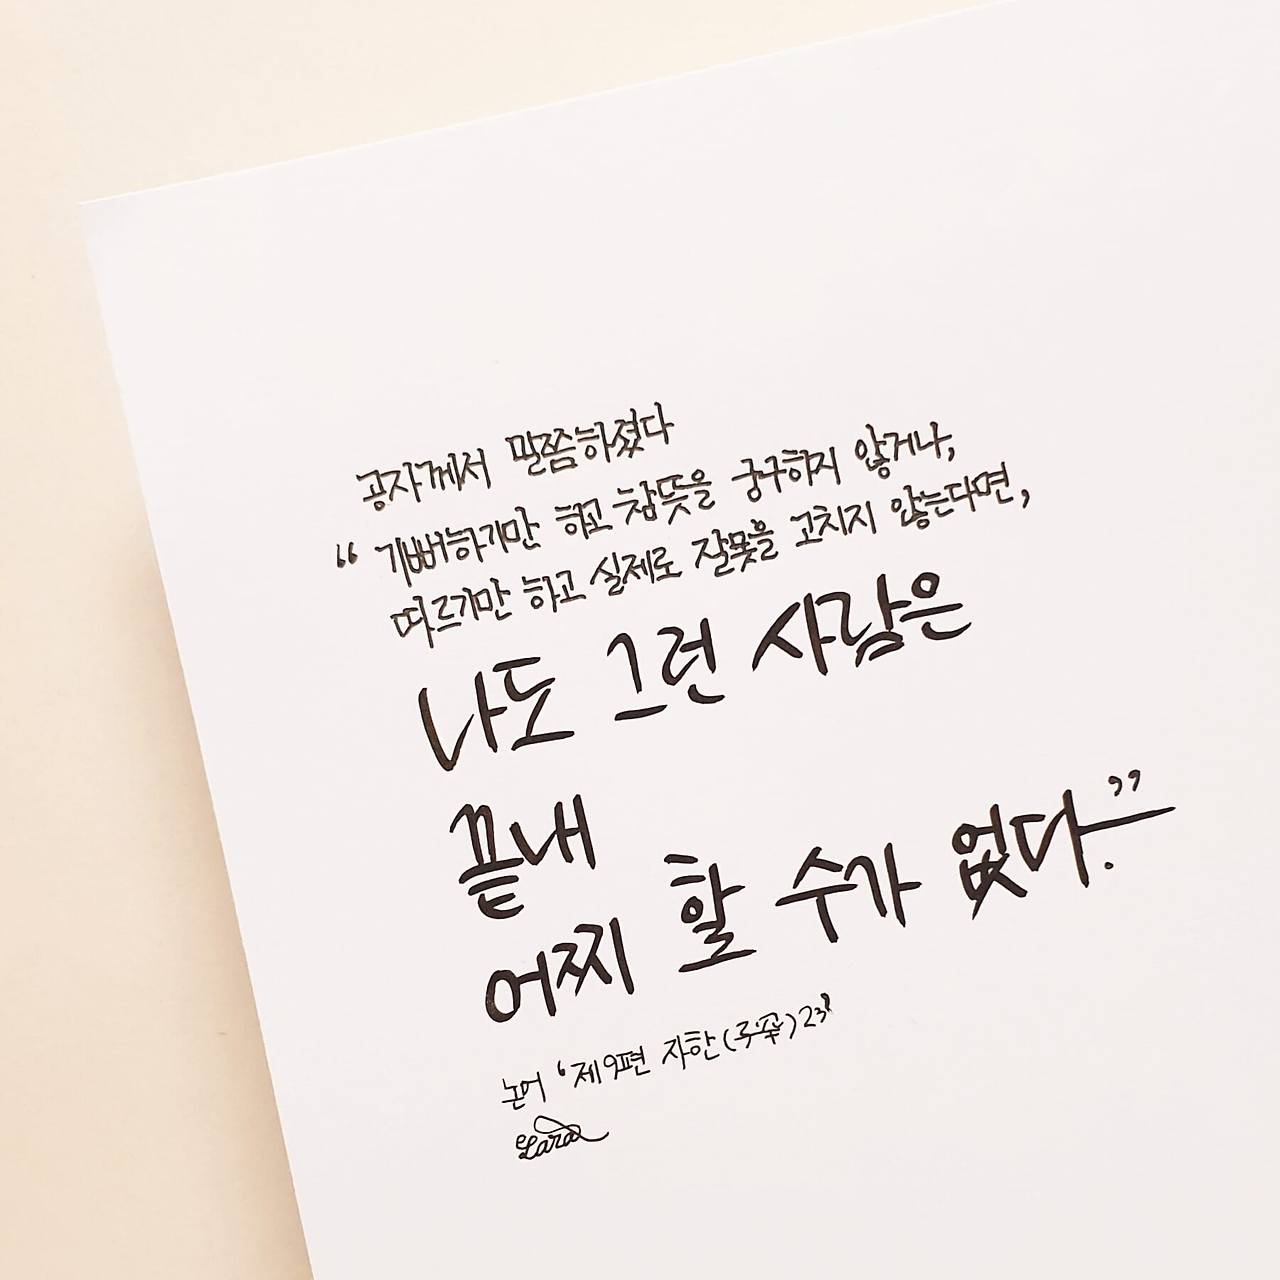 공자께서 말씀하셨다
“기뻐하기만 하고 참뜻을 궁구하지 않거나,
따르기만 하고 실제로 잘못을 고치지 않는다면,
나도 그런 사람은
끝내
어찌 할 수가 없다.”
논어 ‘제9편 자한(子罕)23’
Lara